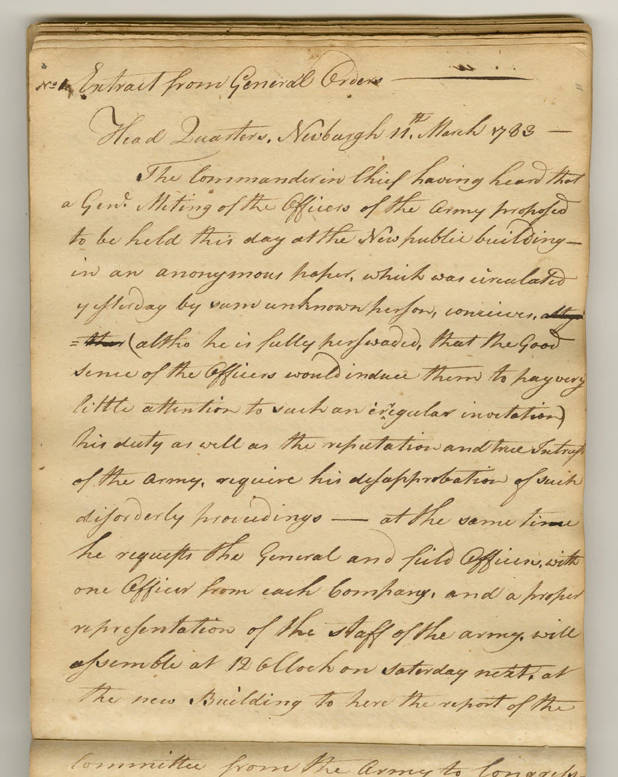 No 1, Extract from General Orders
Head Quarters, Newburgh 11th. March 1783 —
The Commander in Chief having heard that
a Genl. Meting of the Officers of the Army proposed
to be held this day at the New public building—
in an anonymous paper, which was circulated
yesterday by sum unknown person, conceives,
(altho he is fully perswaded, that the Good
sence of the Officers would induce them to pay very
little attention to such an irregular invitation)
his duty as well as the reputation and true Intrust
of the army, require his disapprobation of such
disorderly proceedings — at the same time
he requests the General and field Officers, with
one Officer from each Company, and a proper
representation of the staff of the army, will
assemble at 12 OClock on saturday next, at
the new Building to here the report of the
Committee from the Army to Congress